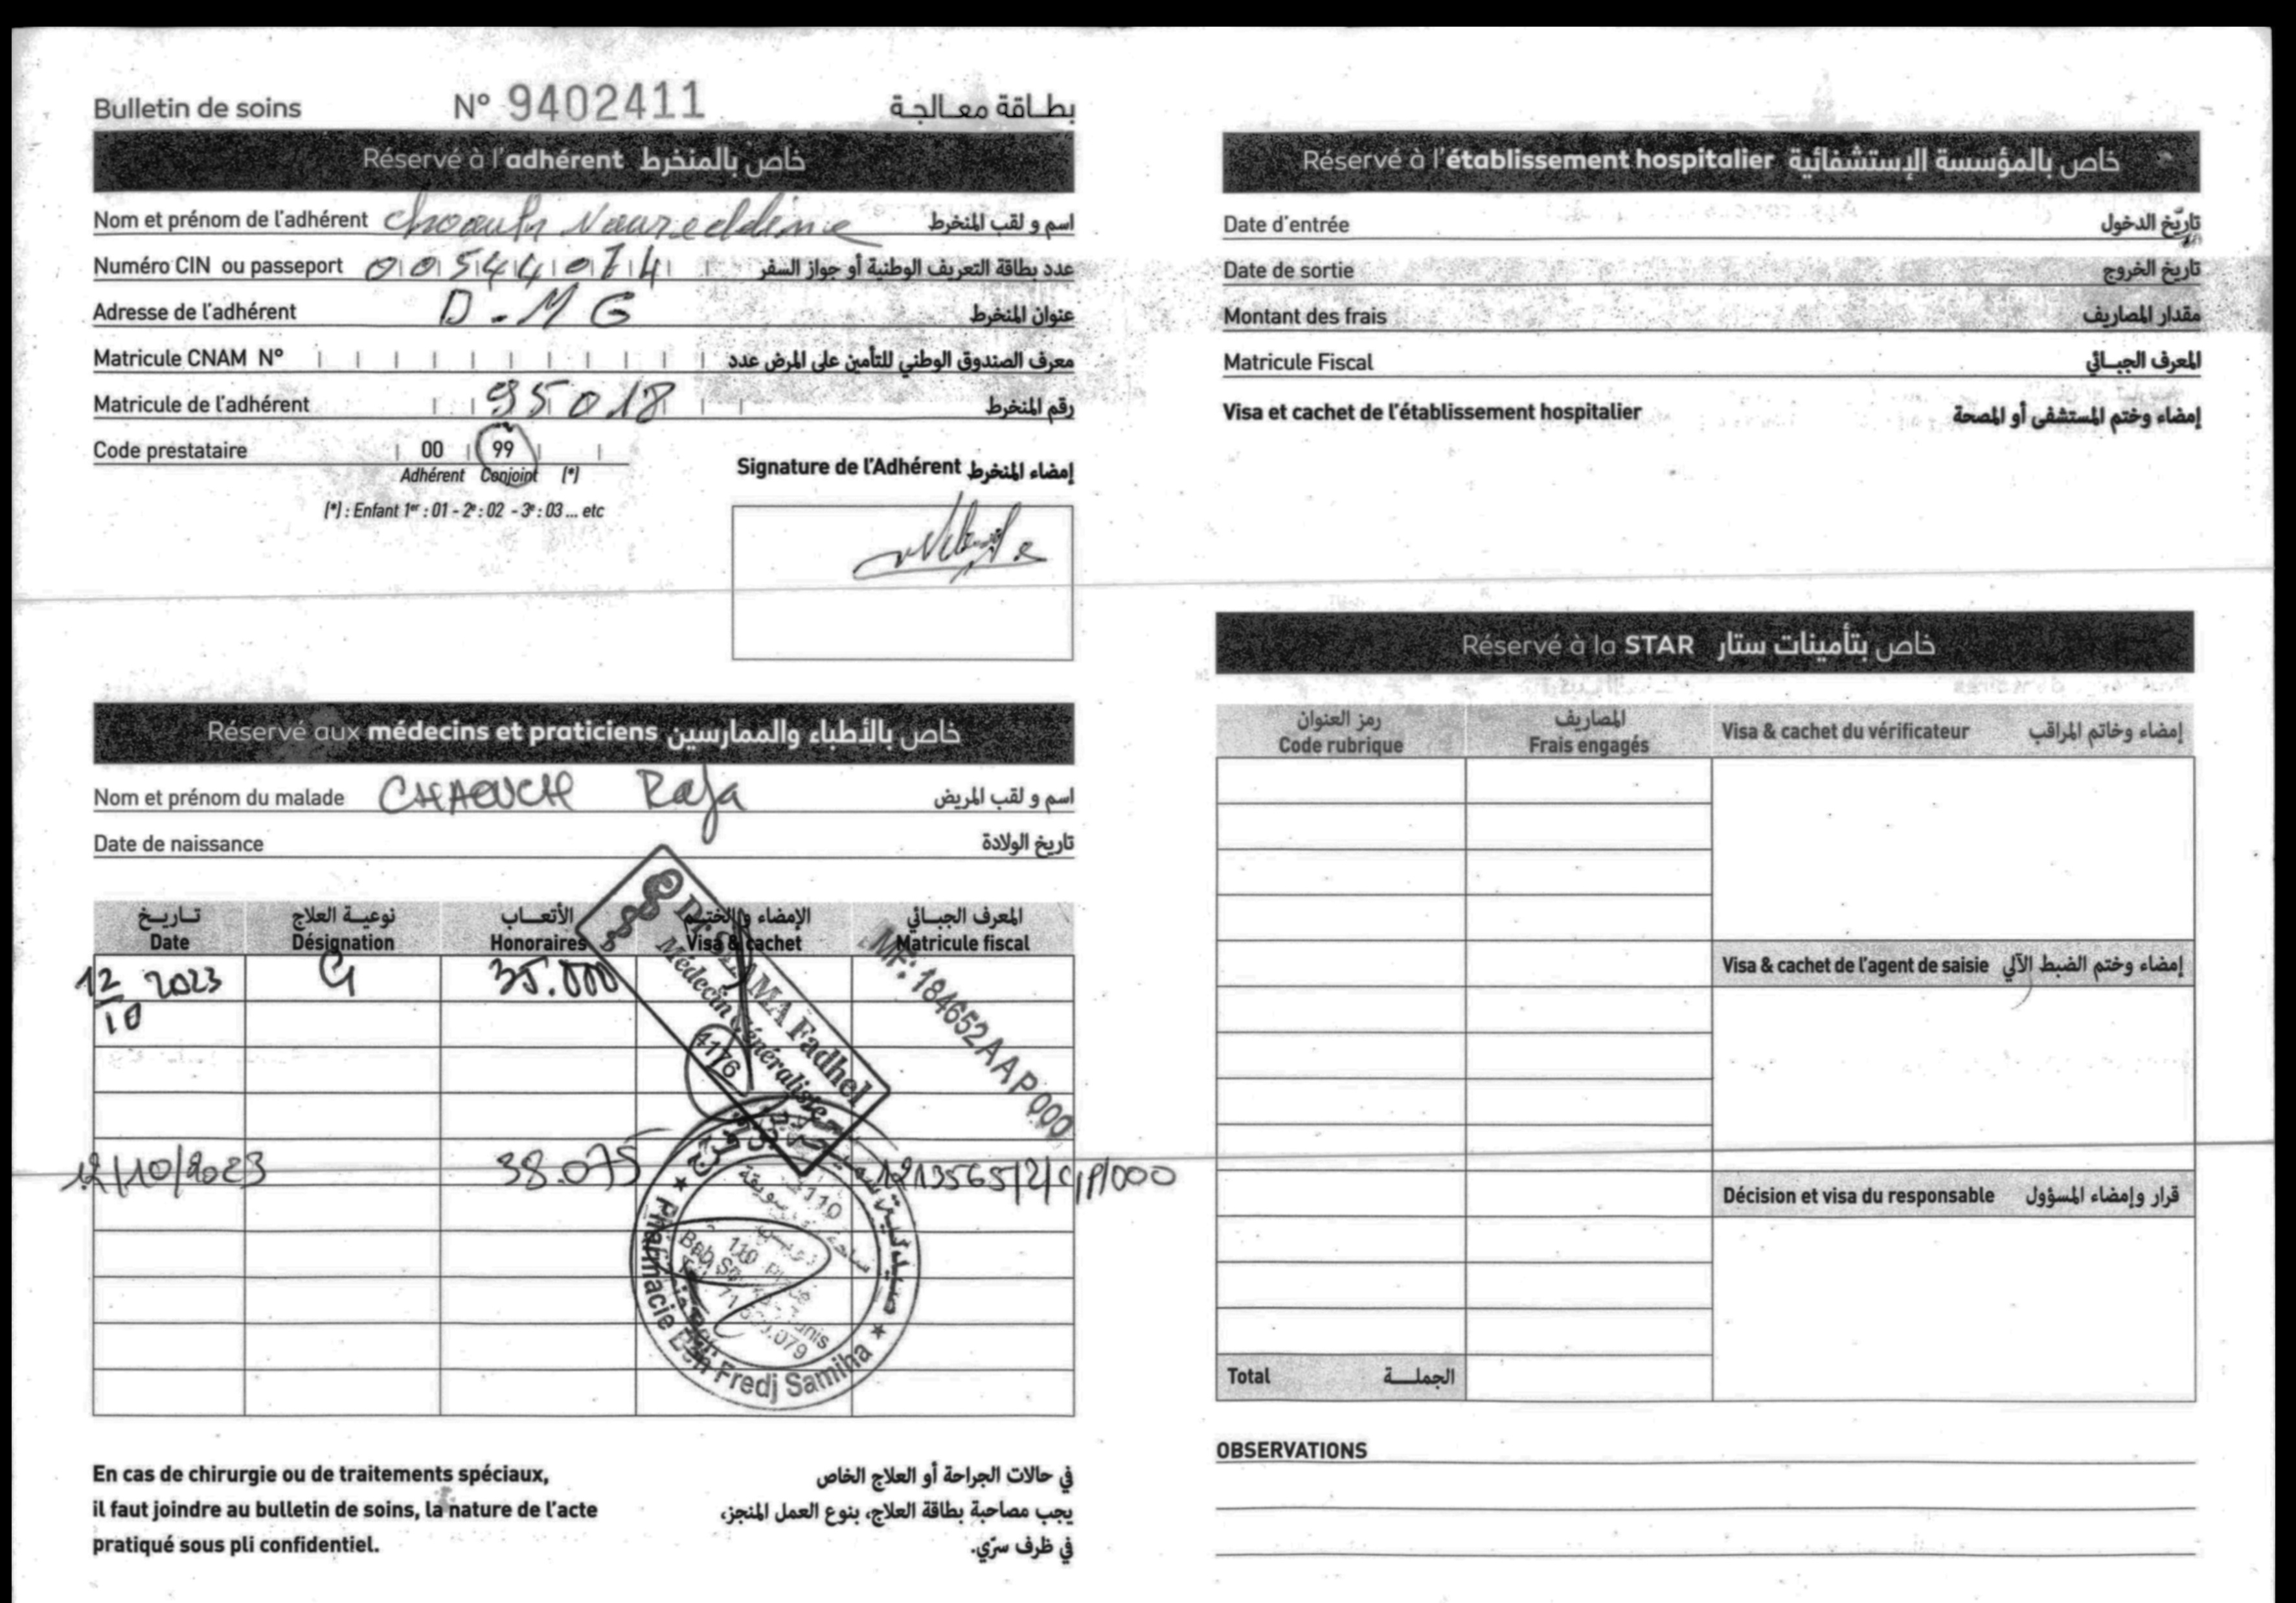 Bulletin de soins N° 9402411 بطـاقة معـالجـة
Réservé à l'adhérent خاص بالمنخرط
Nom et prénom de l'adhérent Noureddine اسم و لقب المنخرط
Numéro CIN ou passeport عدد بطاقة التعريف الوطنية أو جواز السفر
Adresse de l'adhérent D-MG عنوان المنخرط
Matricule CNAM N° معرف الصندوق الوطني للتأمين على المرض عدد
Matricule de l'adhérent 95018 رقم المنخرط
Code prestataire 00 99
Adhérent Conjoint (*)
(*) : Enfant 1er : 01 - 2e : 02 - 3e : 03 ... etc
Signature de l'Adhérent إمضاء المنخرط
Réservé aux médecins et praticiens خاص بالأطباء والممارسين
Nom et prénom du malade CHAOUCH Raja اسم و لقب المريض
Date de naissance تاريخ الولادة
تـاريـخ نوعيـة العلاج الأتعـاب الإمضاء والختـم المعرف الجبـائي
Date Désignation Honoraires Visa & cachet Matricule fiscal
12/10 2023 35.000
Fadhel
Médecin Généraliste
4176
MF: 184652AAP000
12/10/2023 38.075 1213565/2/C/P/000
Pharmacie Ben Fredj Samiha
110
En cas de chirurgie ou de traitements spéciaux,
il faut joindre au bulletin de soins, la nature de l'acte
pratiqué sous pli confidentiel.
في حالات الجراحة أو العلاج الخاص
يجب مصاحبة بطاقة العلاج، بنوع العمل المنجز،
في ظرف سرّي.
Réservé à l'établissement hospitalier خاص بالمؤسسة الإستشفائية
Date d'entrée تاريخ الدخول
Date de sortie تاريخ الخروج
Montant des frais مقدار المصاريف
Matricule Fiscal المعرف الجبـائي
Visa et cachet de l'établissement hospitalier إمضاء وختم المستشفى أو المصحة
Réservé à la STAR خاص بتأمينات ستار
رمز العنوان المصاريف
Code rubrique Frais engagés Visa & cachet du vérificateur إمضاء وخاتم المراقب
Visa & cachet de l'agent de saisie إمضاء وختم الضبط الآلي
Décision et visa du responsable قرار وإمضاء المسؤول
Total الجملـــة
OBSERVATIONS